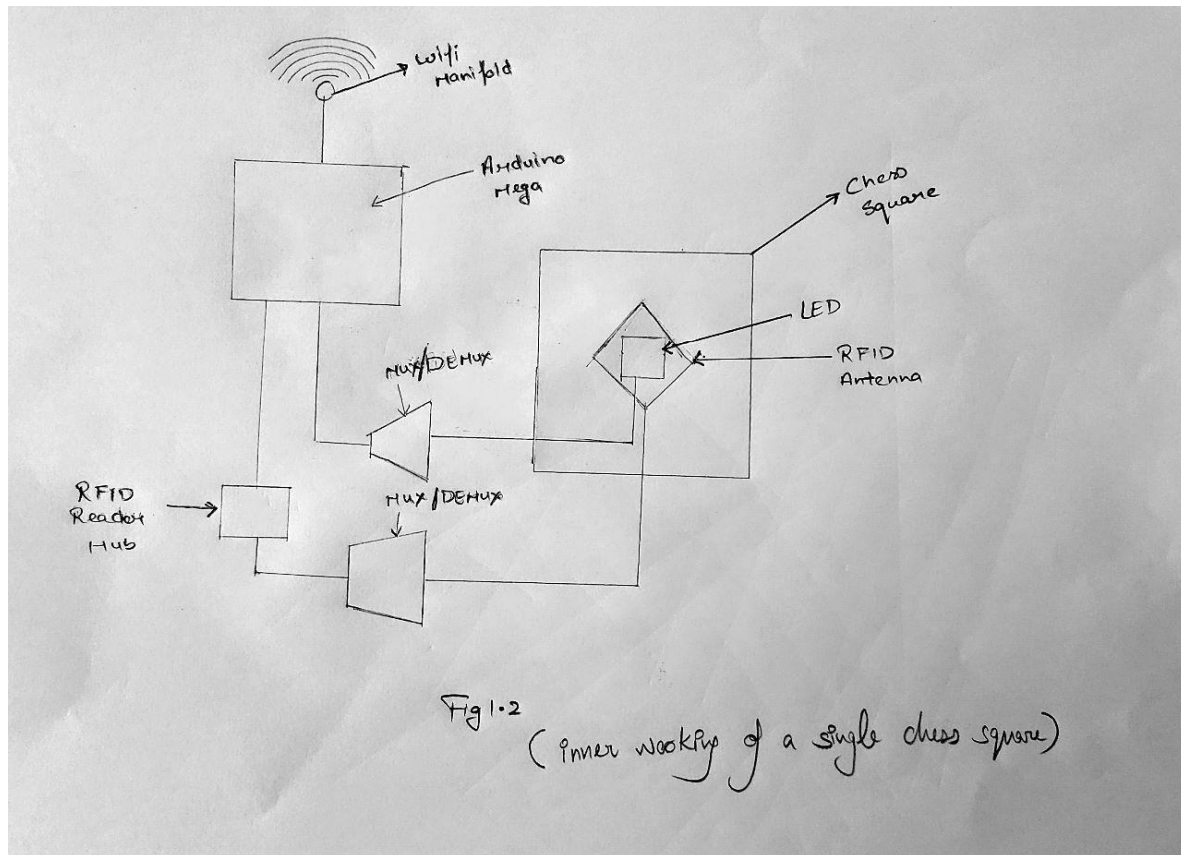 Wifi
Manifold
Arduino
Mega
Chess
Square
LED
RFID
Antenna
MUX/DEMUX
MUX/DEMUX
RFID
Reader
Hub
Fig 1.2
(inner wooking of a single chess square)